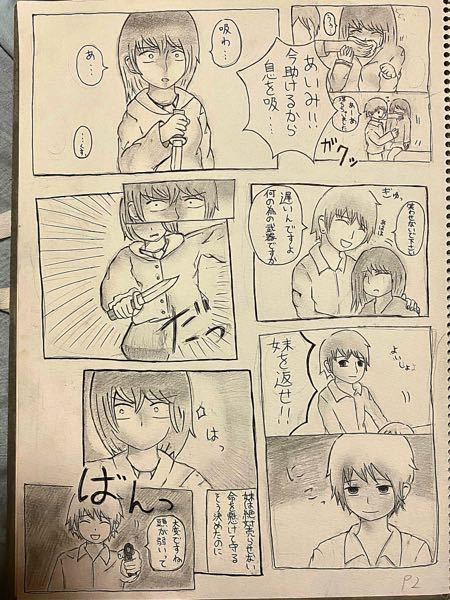 あーあ
ガクッ
あいみ!!
今助けるから
息を吸…
吸わ…
あ…
ぎゅ
笑わせないで下さい
あはは
遅いんですよ
何の為の武器ですか
だっ
よいしょ
妹を返せ!!
はっ
妹は絶対売らせない
命を懸けて守る
そう決めたのに
ばんっ
大変ですね
頭が弱いって
P2